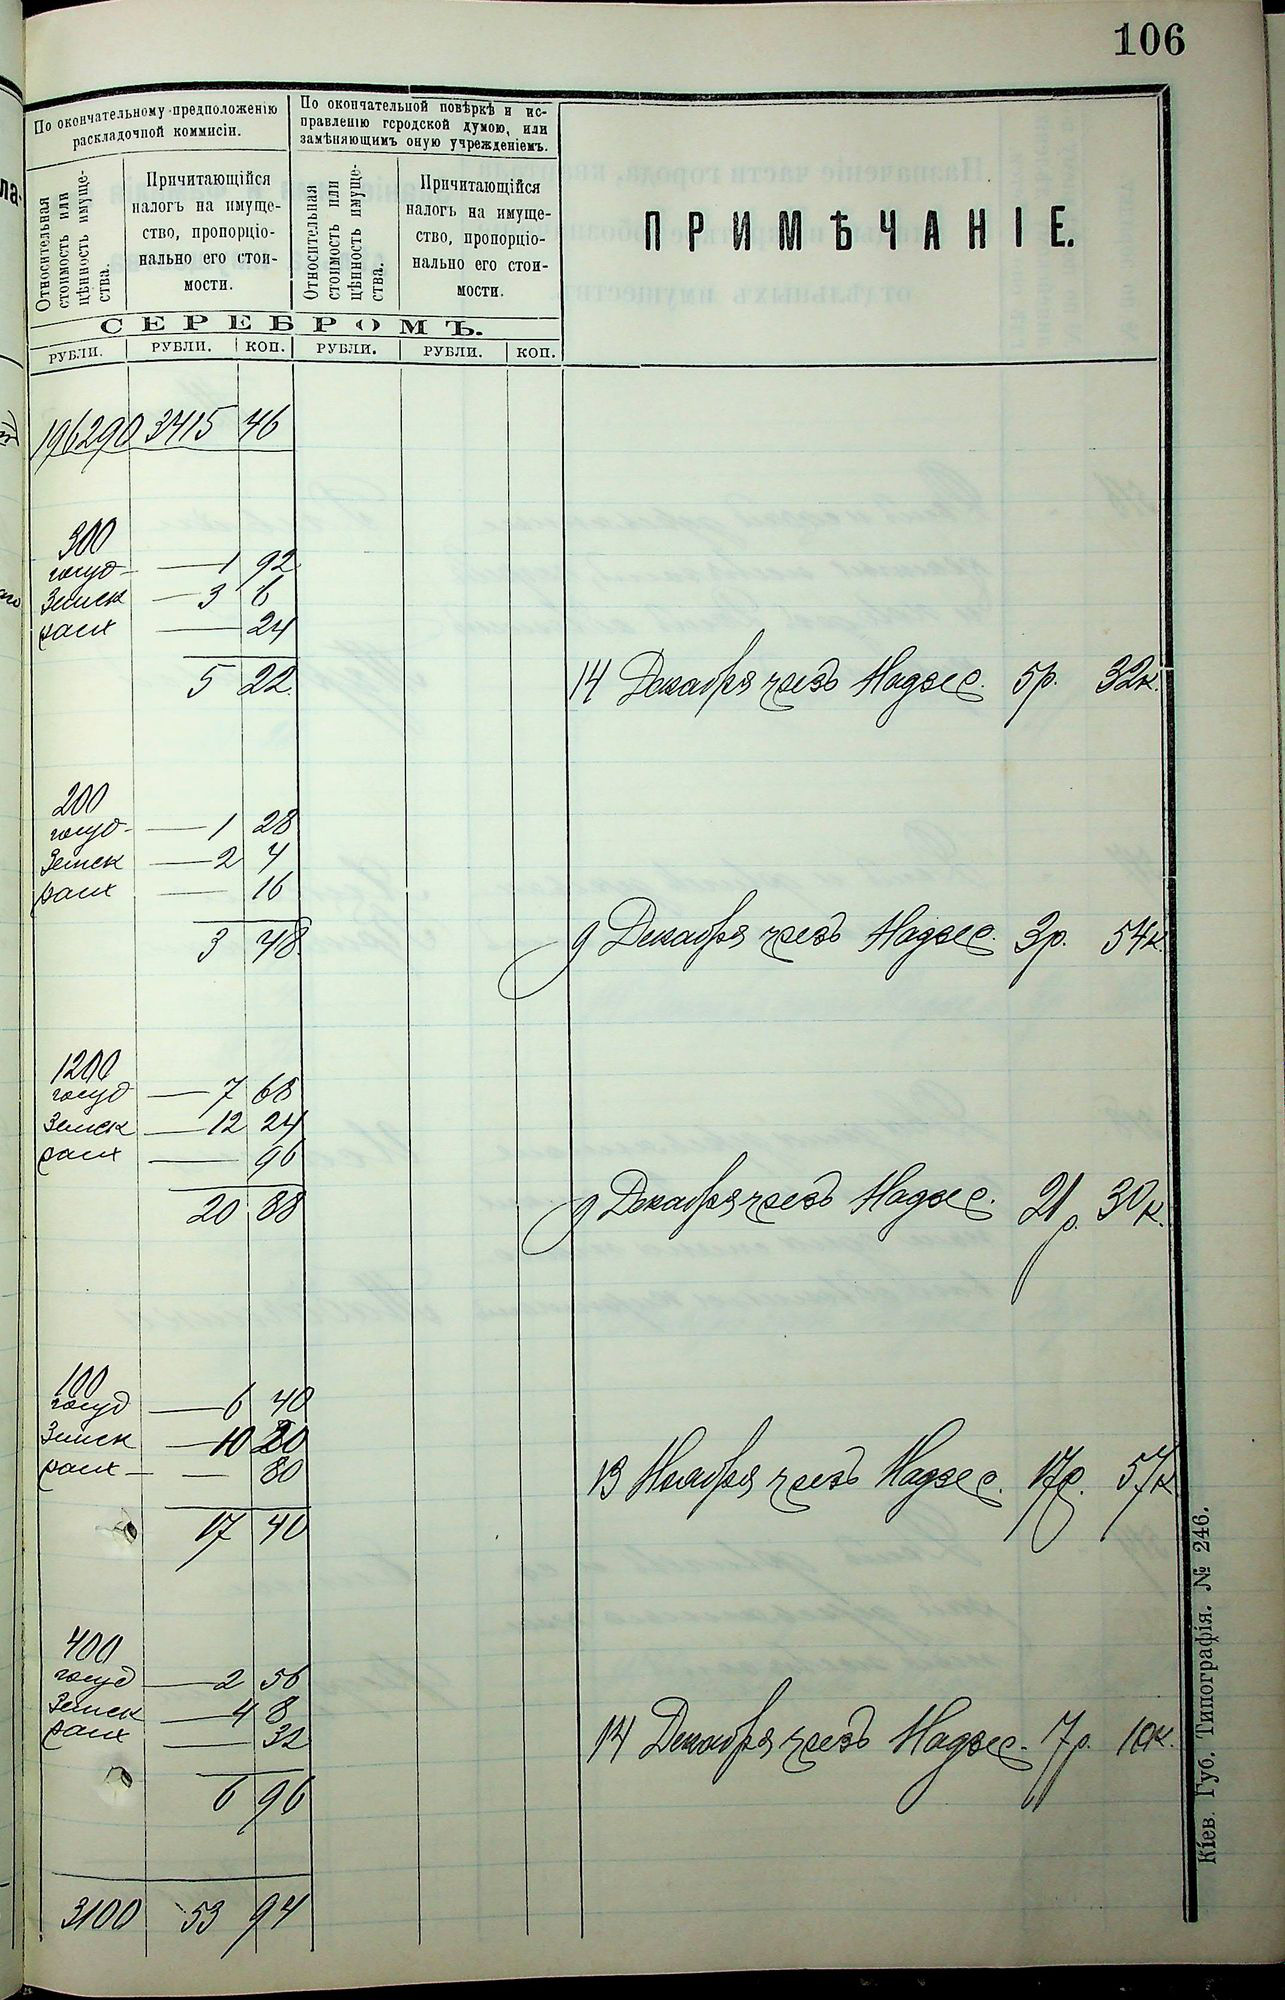 106
По окончательному предположенію
раскладочной коммисіи.
По окончательной повѣркѣ и ис-
правленію городской думою, или
замѣняющимъ оную учрежденіемъ.
Относительная
стоимость или
цѣнность имуще-
ства.
Причитающійся
налогъ на имуще-
ство, пропорціо-
нально его стои-
мости.
Относительная
стоимость или
цѣнность имуще-
ства.
Причитающійся
налогъ на имуще-
ство, пропорціо-
нально его стои-
мости.
ПРИМѢЧАНІЕ.
СЕРЕБРОМЪ.
РУБЛИ. РУБЛИ. КОП. РУБЛИ. РУБЛИ. КОП.
196290 3415 46
300
госуд — 1 92
Земск — 3 6
— 24
5 22
14 Декабря чрезъ Надзес. 5р. 32к.
200
госуд — 1 28
Земск — 2 4
— 16
3 48
9 Декабря чрезъ Надзес. 3р. 54к.
1200
госуд — 7 68
Земск — 12 24
— 96
20 88
9 Декабря чрезъ Надзес. 21р. 30к.
100
госуд — 6 40
Земск — 10 20
— 80
17 40
13 Ноября чрезъ Надзес. 17р. 57к
400
госуд — 2 56
Земск — 4 8
— 32
6 96
14 Декабря чрезъ Надзес. 7р. 10к.
3100 53 94
Кіев. Губ. Типографія. № 246.